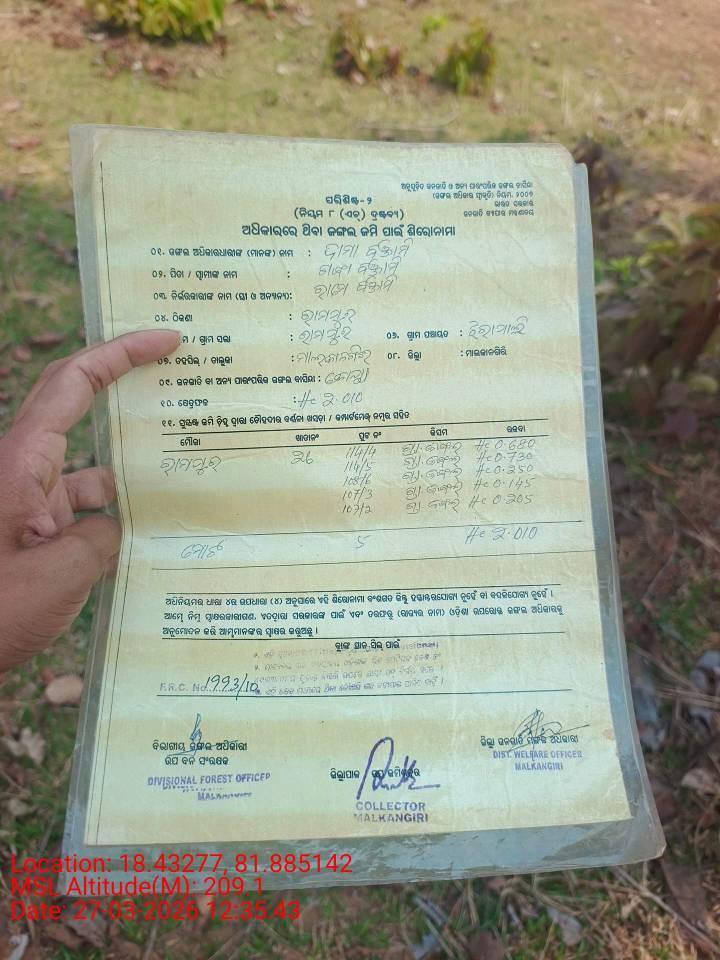 ଅନୁସୂଚିତ ଜନଜାତି ଓ ଅନ୍ୟ ପାରମ୍ପରିକ ଜଙ୍ଗଲ ବାସିନ୍ଦା
(ଜଙ୍ଗଲ ଅଧିକାର ସ୍ବୀକୃତି) ନିୟମ, ୨୦୦୭
ଭାରତ ସରକାର
ଜନଜାତି ବ୍ୟାପାର ମନ୍ତ୍ରଣାଳୟ
ପରିଶିଷ୍ଟ-୨
(ନିୟମ ୮ (ଏଚ୍) ଦ୍ରଷ୍ଟବ୍ୟ)
ଅଧିକାରରେ ଥିବା ଜଙ୍ଗଲ ଜମି ପାଇଁ ଶିରୋନାମା
୦୧. ଜଙ୍ଗଲ ଅଧିକାରଧାରୀଙ୍କ (ମାନଙ୍କ) ନାମ :
୦୨. ପିତା / ସ୍ବାମୀଙ୍କ ନାମ :
୦୩. ନିର୍ଭରକାରୀଙ୍କ ନାମ (ସ୍ତ୍ରୀ ଓ ଅନ୍ୟାନ୍ୟ):
୦୪. ଠିକଣା : ରାମପୁର
ମ / ଗ୍ରାମ ସଭା : ରାମପୁର ୦୬. ଗ୍ରାମ ପଞ୍ଚାୟତ :
୦୭. ତହସିଲ / ତାଲୁକା : ମାଲକାନଗିରି ୦୮. ଜିଲ୍ଲା : ମାଲକାନଗିରି
୦୯. ଜନଜାତି ବା ଅନ୍ୟ ପାରମ୍ପରିକ ଜଙ୍ଗଲ ବାସିନ୍ଦା : କୋୟା
୧୦. କ୍ଷେତ୍ରଫଳ : Hc 2.010
୧୧. ସୁସ୍ପଷ୍ଟ ଜମି ଚିହ୍ନ ଦ୍ବାରା ଚୌହଦୀର ବର୍ଣ୍ଣନା ଖସଡ଼ା / କମ୍ପାର୍ଟମେଣ୍ଟ ନମ୍ବର ସହିତ
ମୌଜା ଖାତାନଂ ପ୍ଲଟ ନଂ କିସମ ରକବା
ରାମପୁର 26 114/4 ଗ୍ରା. ଜଙ୍ଗଲ Hc 0.680
114/5 ଗ୍ରା. ଜଙ୍ଗଲ Hc 0.730
108/6 ଗ୍ରା. ଜଙ୍ଗଲ Hc 0.250
107/3 ଗ୍ରା. ଜଙ୍ଗଲ Hc 0.145
107/2 ଗ୍ରା. ଜଙ୍ଗଲ Hc 0.205
ମୋଟ 5 Hc 2.010
ଅଧିନିୟମର ଧାରା ୪ର ଉପଧାରା (୪) ଅନୁସାରେ ଏହି ଶିରୋନାମା ବଂଶଗତ କିନ୍ତୁ ହସ୍ତାନ୍ତରଯୋଗ୍ୟ ନୁହେଁ ବା ବଦଳିଯୋଗ୍ୟ ନୁହେଁ ।
ଆମେ ନିମ୍ନ ସ୍ୱାକ୍ଷରକାରୀଗଣ, ଏତଦ୍ଦ୍ୱାରା ସରକାରଙ୍କ ପାଇଁ ଏବଂ ତରଫରୁ (ରାଜ୍ୟର ନାମ) ଓଡ଼ିଶା ଉପରୋକ୍ତ ଜଙ୍ଗଲ ଅଧିକାରକୁ
ଅନୁମୋଦନ କରି ଆମ୍ଭମାନଙ୍କର ସ୍ୱାକ୍ଷର କରୁଅଛୁ ।
F.R.C. No. 1993/10
ବିଭାଗୀୟ ଜଙ୍ଗଲ ଅଧିକାରୀ
ଉପ ବନ ସଂରକ୍ଷକ
DIVISIONAL FOREST OFFICER
MALKANGIRI
ଜିଲ୍ଲାପାଳ
COLLECTOR
MALKANGIRI
ଜିଲ୍ଲା ଜନଜାତି ମଙ୍ଗଳ ଅଧିକାରୀ
DIST. WELFARE OFFICER
MALKANGIRI
Location: 18.43277, 81.885142
MSL Altitude(M): 209.1
Date: 27-03-2026 12:35:43